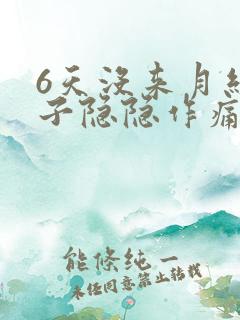 6天没来月经
子隐隐作痛
能条纯一
未经同意禁止转载